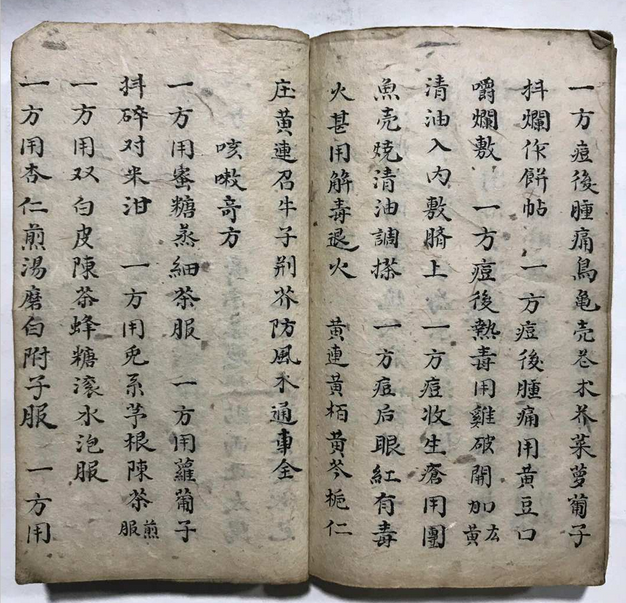 一方痘後腫痛鳥亀壳苍木芥菜萝葡子
抖爛作餅帖　一方痘後腫痛用黄豆口
嚼爛敷　一方痘後熱毒用雞破開加黄
清油入内敷臍上　一方痘收生瘡用團
魚壳燒清油調搽　一方痘后眼紅有毒
火甚用解毒退火　黄連黄栢黄芩栀仁
庄黄連召牛子荆芥防風木通車全
咳嗽竒方
一方用蜜糖蒸細茶服　一方用蘿葡子
抖碎对米泔　一方用兎系茅根陳茶煎服
一方用双白皮陳茶蜂糖滚水泡服
一方用杏仁煎湯磨白附子服　一方用